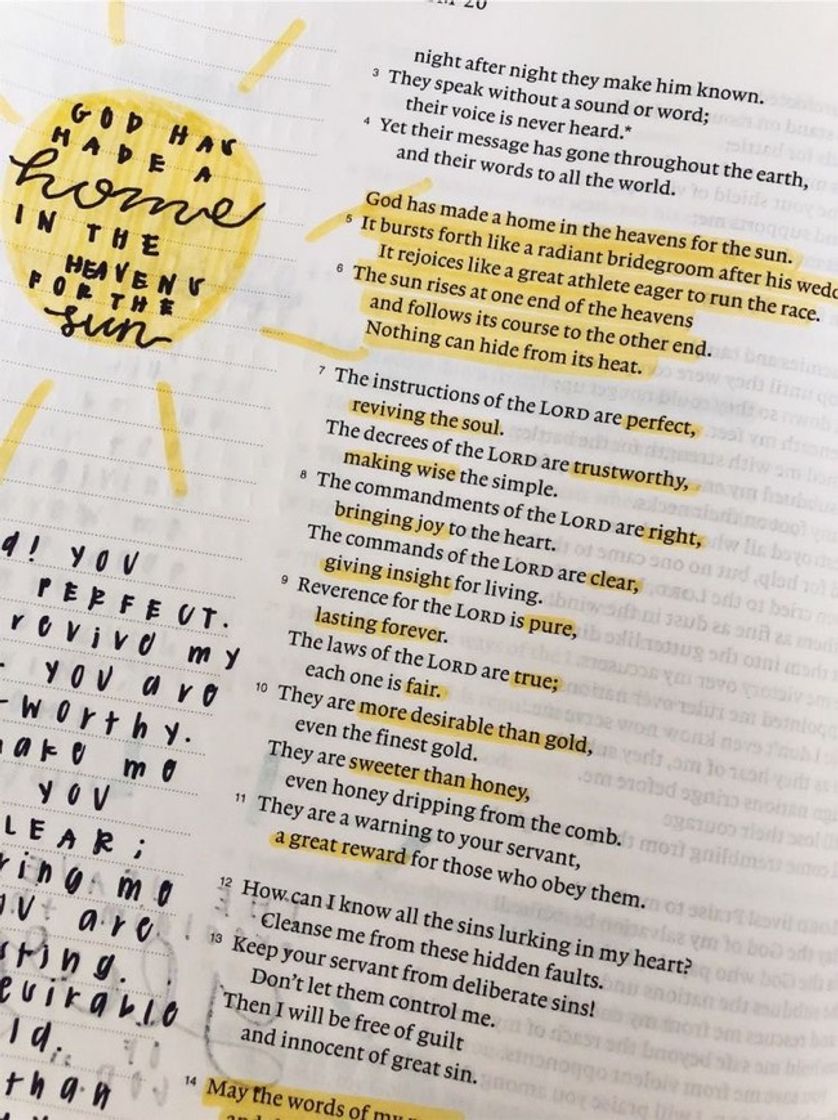 20
GOD HAS
MADE A
home
IN THE
HEAVENS
FOR THE
sun
d! YOU
PERFECT.
revive my
YOU are
worthy.
make me
YOU
LEAR;
ring me
are
sting.
ld.
than
night after night they make him known.
3 They speak without a sound or word;
their voice is never heard.*
4 Yet their message has gone throughout the earth,
and their words to all the world.
God has made a home in the heavens for the sun.
5 It bursts forth like a radiant bridegroom after his wedd
It rejoices like a great athlete eager to run the race.
6 The sun rises at one end of the heavens
and follows its course to the other end.
Nothing can hide from its heat.
7 The instructions of the LORD are perfect,
reviving the soul.
The decrees of the LORD are trustworthy,
making wise the simple.
8 The commandments of the LORD are right,
bringing joy to the heart.
The commands of the LORD are clear,
giving insight for living.
9 Reverence for the LORD is pure,
lasting forever.
The laws of the LORD are true;
each one is fair.
10 They are more desirable than gold,
even the finest gold.
They are sweeter than honey,
even honey dripping from the comb.
11 They are a warning to your servant,
a great reward for those who obey them.
12 How can I know all the sins lurking in my heart?
Cleanse me from these hidden faults.
13 Keep your servant from deliberate sins!
Don't let them control me.
Then I will be free of guilt
and innocent of great sin.
14 May the words of my